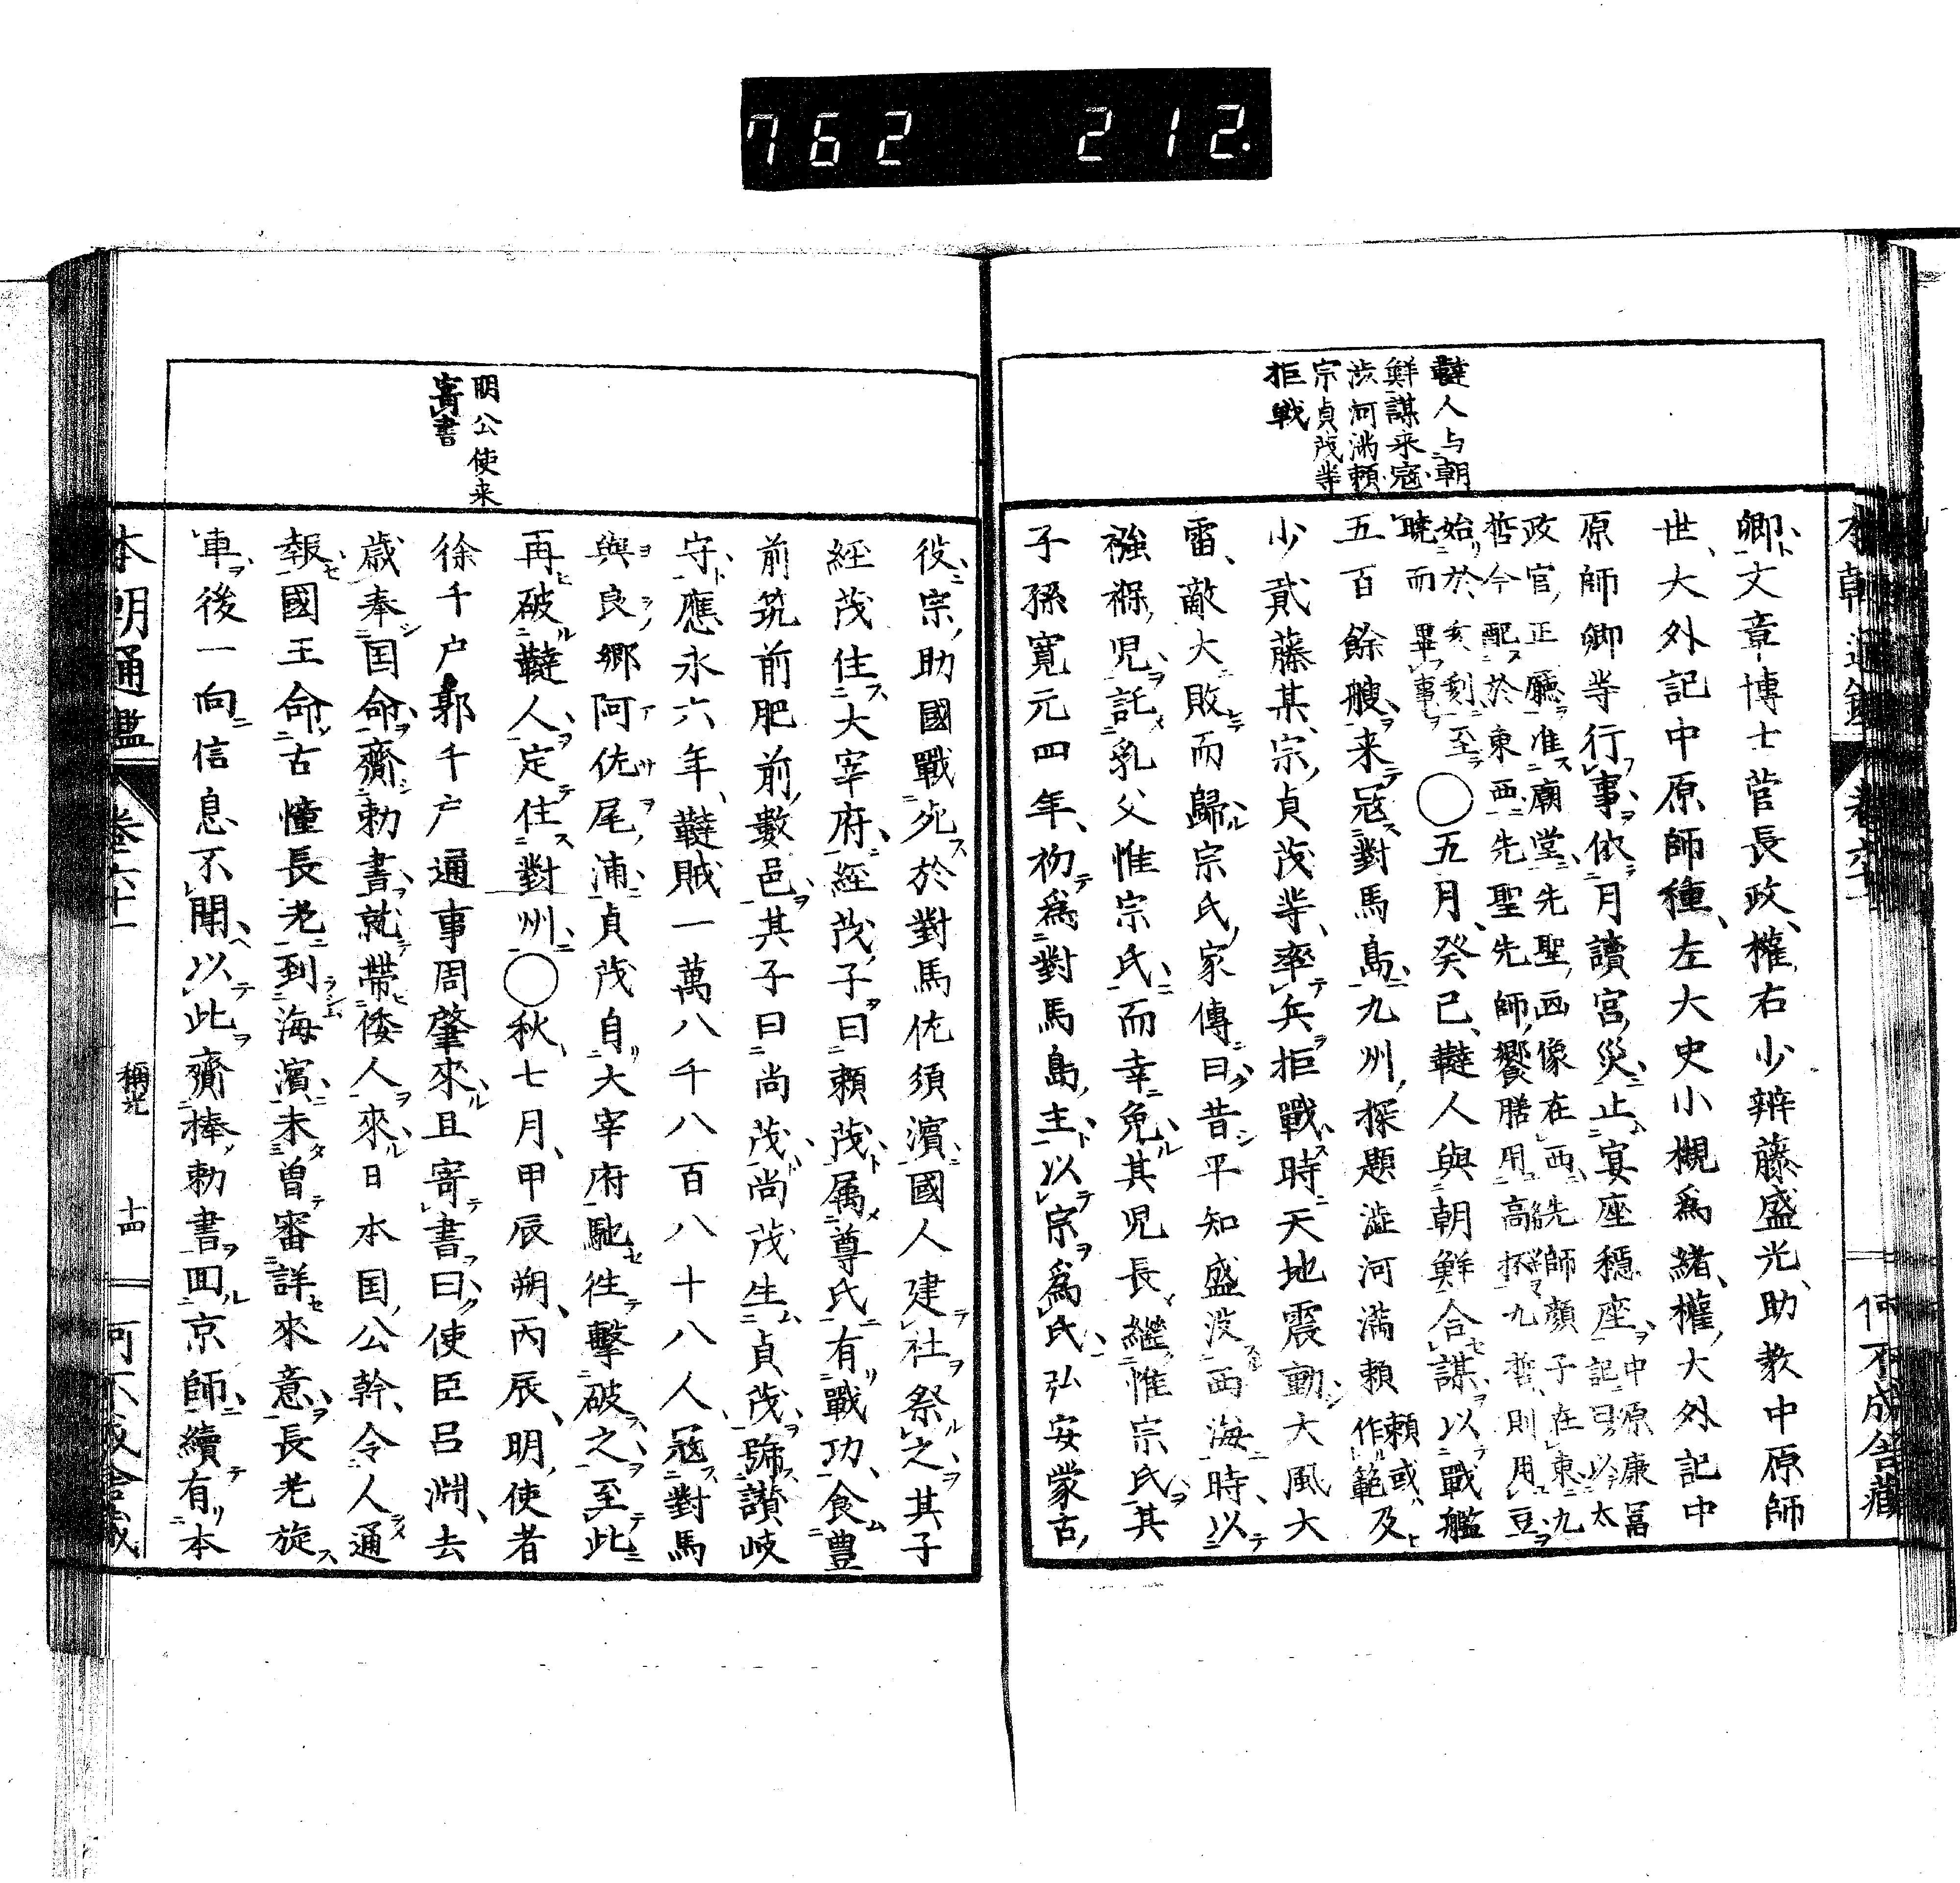 762 212.
韃人与朝
鮮謀来寇
渋河満頼
宗貞茂等
拒戦
卿文章博士菅長政權右少辨藤盛光助教中原師
世大外記中原師種左大史小槻為緒權大外記中
原師卿等行事依月讀宮災止宴座穏座中原康冨記曰以太
政官正廳准廟堂先聖画像在西先師顔子在東九
哲今配於東西先聖先師饗膳用高杯九哲則用豆
始於亥刻至
曉而畢事○五月癸已韃人與朝鮮合謀以戰艦
五百餘艘来寇對馬島九州探題澁河満頼頼或作範及
少貳藤某宗貞茂等率兵拒戰時天地震動大風大
雷敵大敗而歸宗氏家傳曰昔平知盛没西海時以
襁褓児託乳父惟宗氏而幸免其児長繼惟宗氏其
子孫寛元四年初為對馬島主以宗為氏弘安蒙古
役宗助國戰死於對馬佐須濱國人建社祭之其子
經茂住大宰府經茂子曰頼茂属尊氏有戰功食豊
前筑前肥前數邑其子曰尚茂尚茂生貞茂號讃岐
守應永六年韃賊一萬八千八百八十八人寇對馬
與良郷阿佐尾浦貞茂自大宰府馳往擊破之至此
再破韃人定住對州○秋七月甲辰朔丙辰明使者
徐千户郭千户通事周肇來且寄書曰使臣呂淵去
歳奉国命齎勅書就帶倭人來日本国公幹令人通
報國王命古幢長老到海濱未曽審詳來意長老旋
車後一向信息不聞以此齎捧勅書回京師續有本
明公使来
寄書
本朝通鑑 卷六十一 稱光 十四 何不成舎蔵